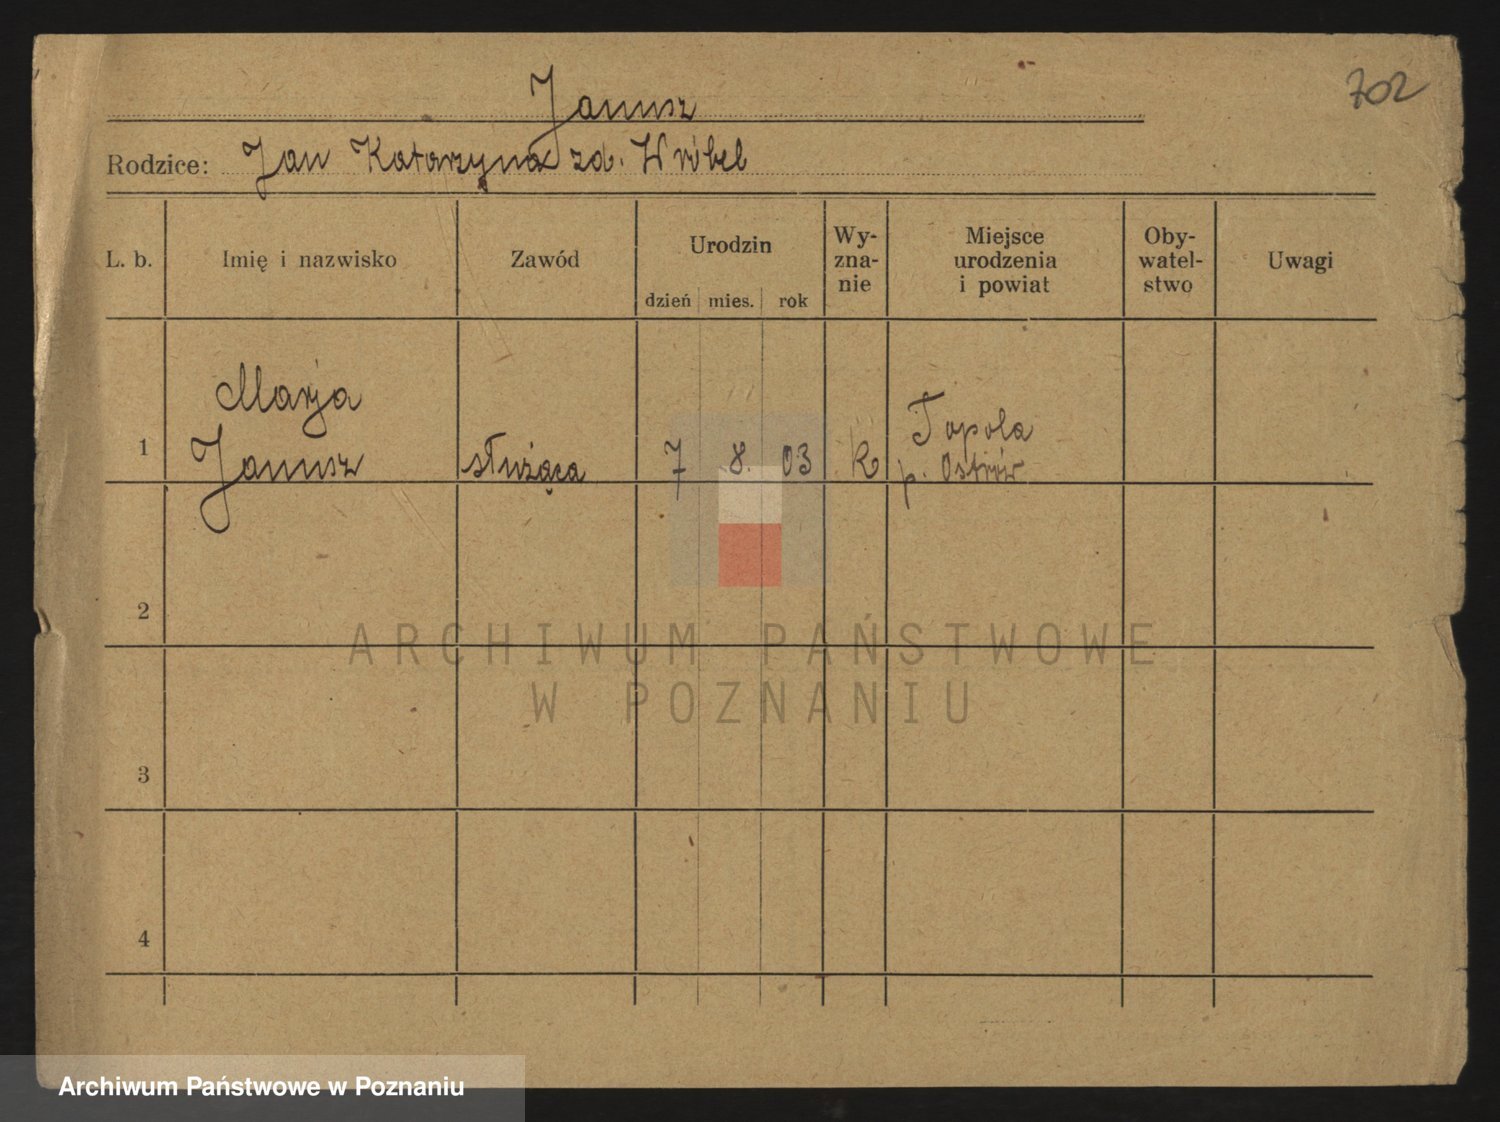 702
Janusz
Rodzice: Jan Katarzyna zd. Wróbel
L. b. Imię i nazwisko Zawód Urodzin dzień mies. rok Wy-
zna-
nie Miejsce
urodzenia
i powiat Oby-
watel-
stwo Uwagi
1 Marja
Janusz służąca 7 8. 03 k Topola
p. Ostrów
2
3
4
ARCHIWUM PAŃSTWOWE
W POZNANIU
Archiwum Państwowe w Poznaniu